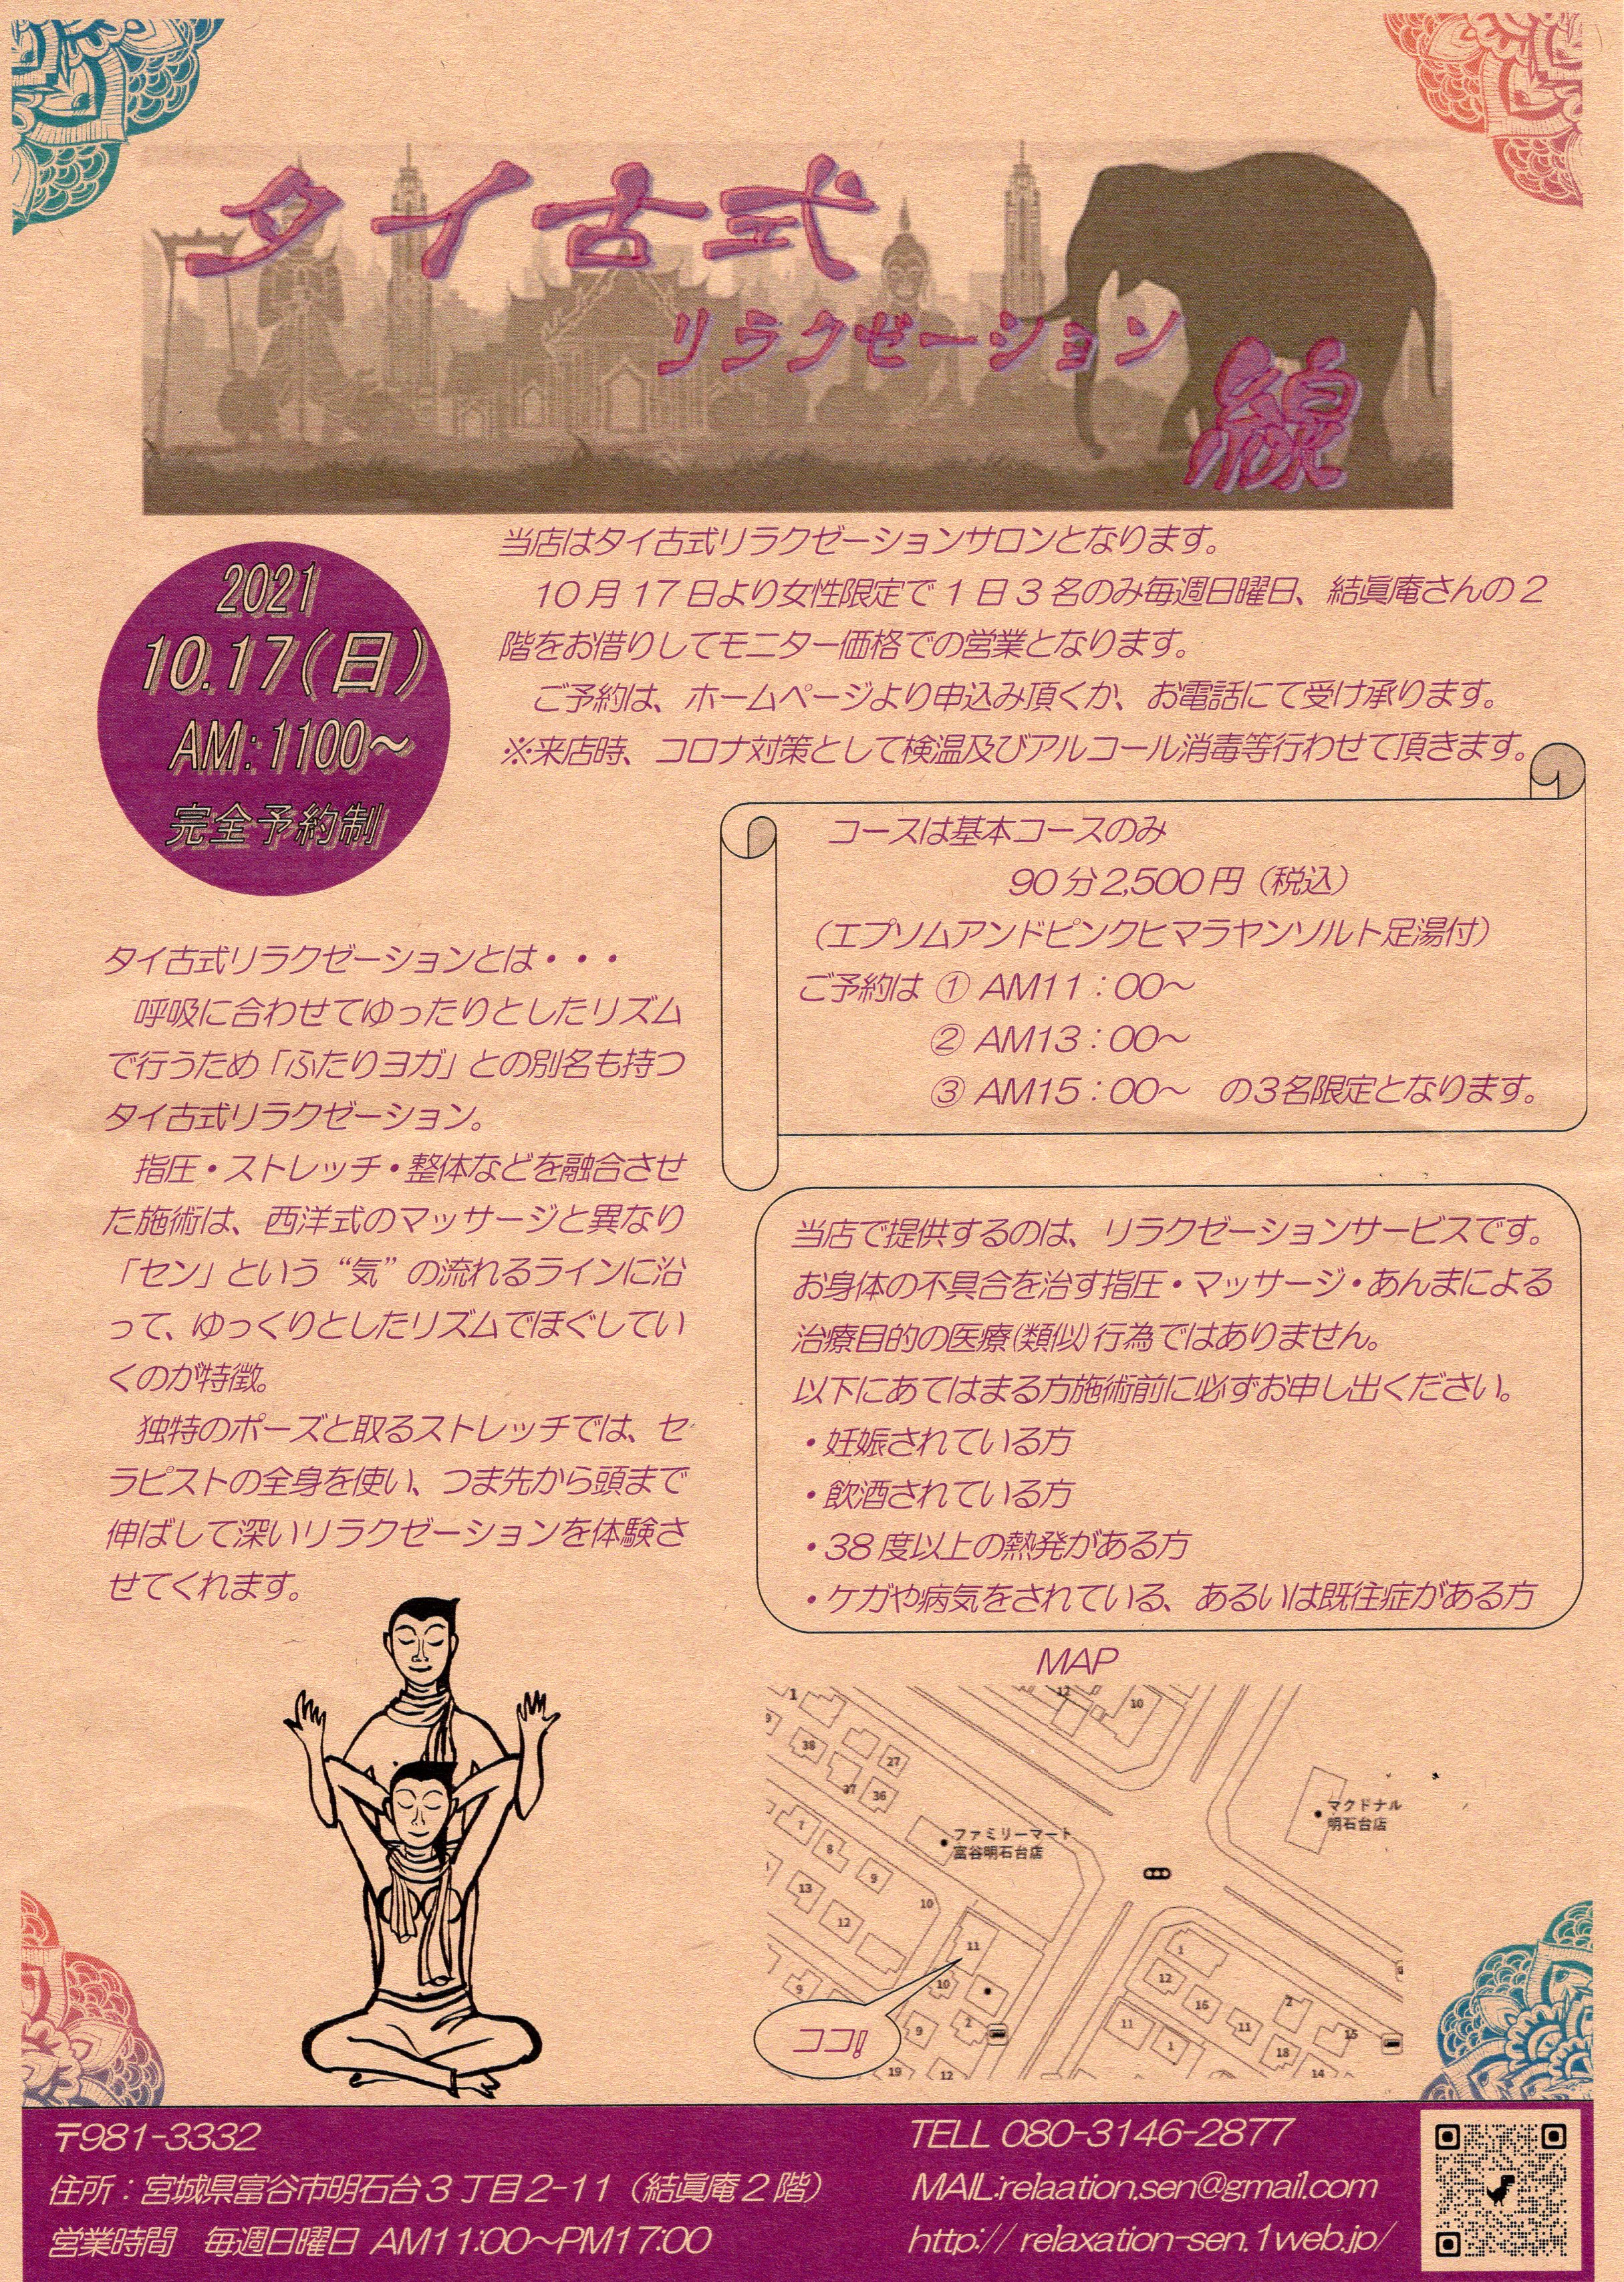 タイ古式
リラクゼーション
線
2021
10.17(日)
AM:1100～
完全予約制
当店はタイ古式リラクゼーションサロンとなります。
10月17日より女性限定で1日3名のみ毎週日曜日、結眞庵さんの2
階をお借りしてモニター価格での営業となります。
ご予約は、ホームページより申込み頂くか、お電話にて受け承ります。
※来店時、コロナ対策として検温及びアルコール消毒等行わせて頂きます。
コースは基本コースのみ
90分2,500円（税込）
（エプソムアンドピンクヒマラヤンソルト足湯付）
ご予約は ① AM11：00～
② AM13：00～
③ AM15：00～ の3名限定となります。
タイ古式リラクゼーションとは・・・
呼吸に合わせてゆったりとしたリズム
で行うため「ふたりヨガ」との別名も持つ
タイ古式リラクゼーション。
指圧・ストレッチ・整体などを融合させ
た施術は、西洋式のマッサージと異なり
「セン」という“気”の流れるラインに沿
って、ゆっくりとしたリズムでほぐしてい
くのが特徴。
独特のポーズと取るストレッチでは、セ
ラピストの全身を使い、つま先から頭まで
伸ばして深いリラクゼーションを体験さ
せてくれます。
当店で提供するのは、リラクゼーションサービスです。
お身体の不具合を治す指圧・マッサージ・あんまによる
治療目的の医療(類似)行為ではありません。
以下にあてはまる方施術前に必ずお申し出ください。
・妊娠されている方
・飲酒されている方
・38度以上の熱発がある方
・ケガや病気をされている、あるいは既往症がある方
MAP
1
12
10
9
38
27
37
36
マクドナル
明石台店
ファミリーマート
富谷明石台店
7
8
9
13
12
10
11
10
9
2
9
19
12
1
12
16
11
2
15
11
1
18
14
ココ!
〒981-3332
住所：宮城県富谷市明石台3丁目2-11（結眞庵2階）
営業時間 毎週日曜日 AM11:00～PM17:00
TELL 080-3146-2877
MAIL:relaation.sen@gmail.com
http:// relaxation-sen.1web.jp/